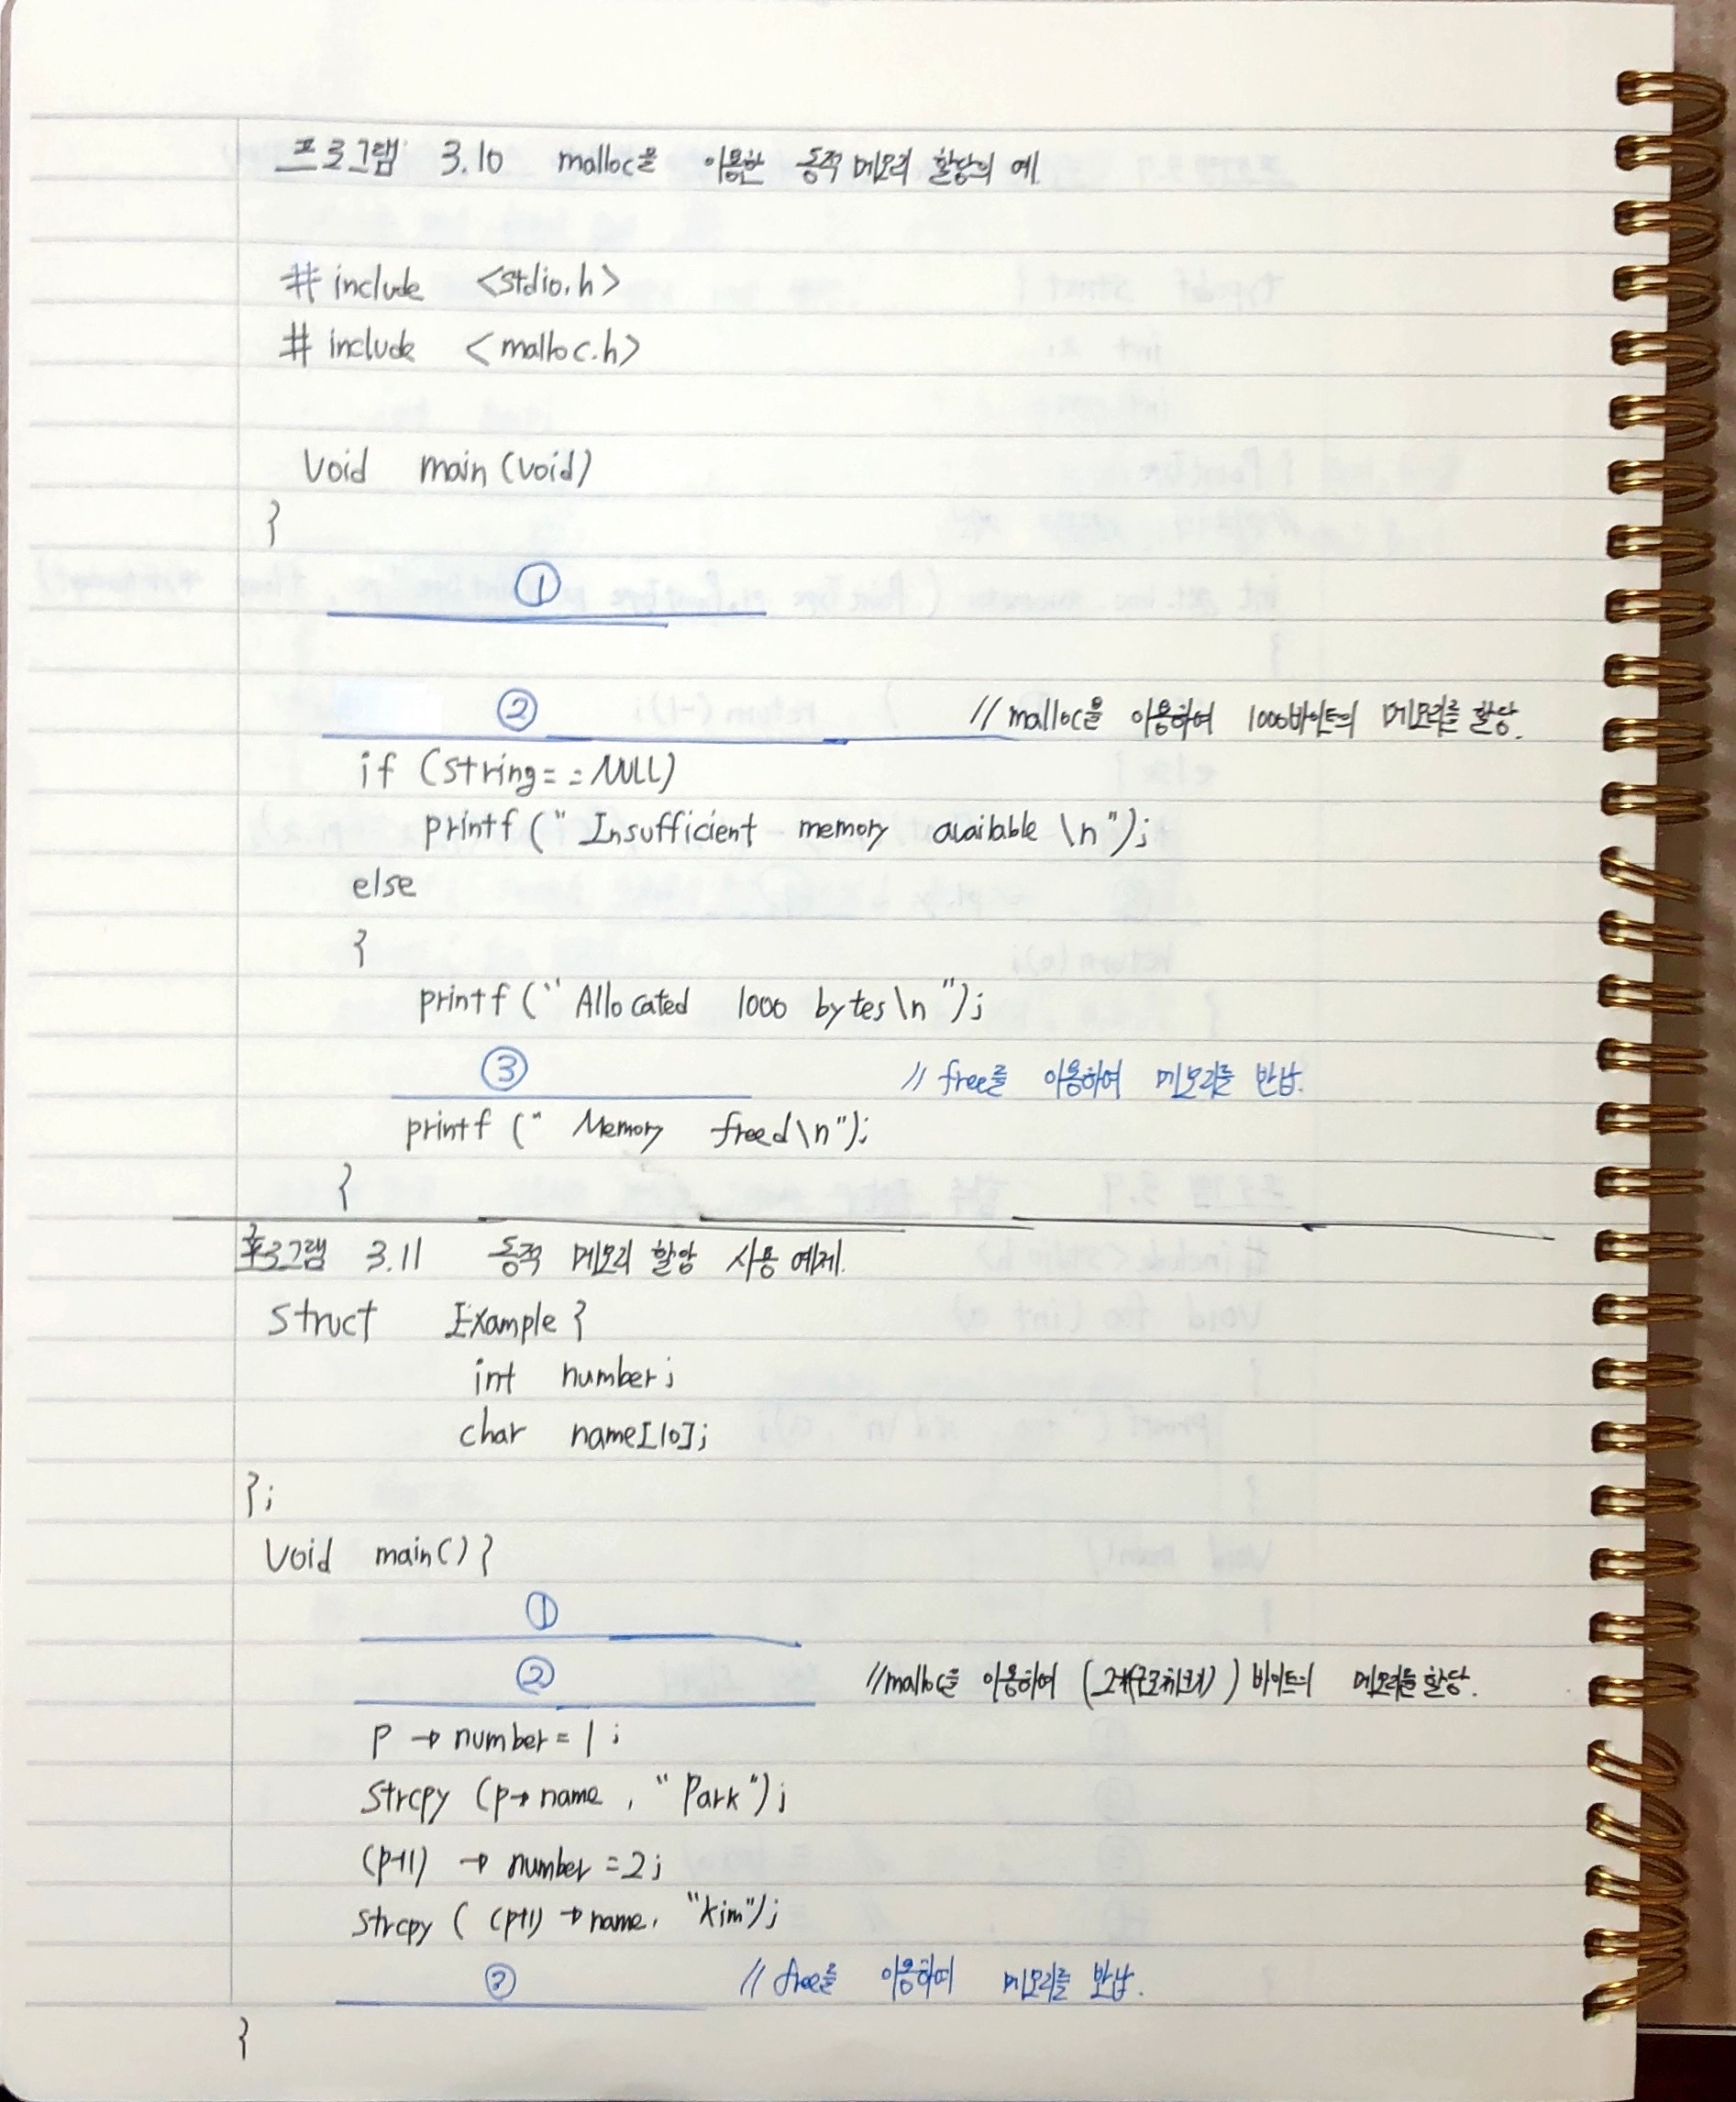 프로그램 3.10 malloc을 이용한 동적 메모리 할당의 예
# include <stdio.h>
# include <malloc.h>
Void main (void)
}
①
② // malloc을 이용하여 1000바이트의 메모리를 할당.
if (string==NULL)
printf (" Insufficient memory available \n");
else
}
printf (" Allocated 1000 bytes\n ");
③ // free를 이용하여 메모리를 반납.
printf (" Memory freed\n");
}
프로그램 3.11 동적 메모리 할당 사용 예제.
Struct Example {
int number;
char name[10];
};
Void main() {
①
② //malloc을 이용하여 (2*(구조체크기)) 바이트의 메모리를 할당.
P → number = 1 ;
Strcpy (p→ name , " Park");
(p+1) → number =2;
Strcpy ( (p+1) → name, "kim");
③ // free를 이용하여 메모리를 반납.
}